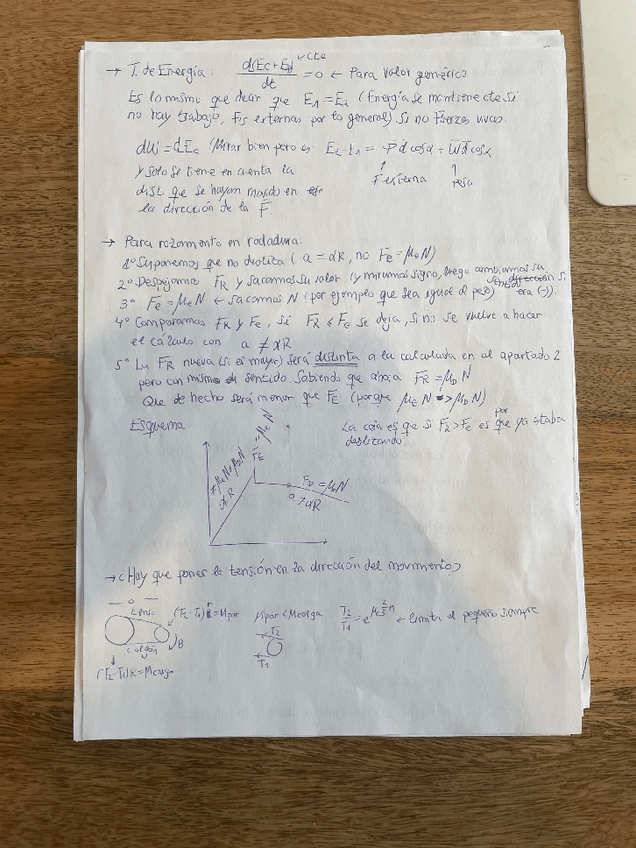 → T. de Energía: d(Ec+Ep)/dt = 0 ← Para valor genérico
cte
Es lo mismo que decir que E1=E2 (Energía se mantiene cte si
no hay trabajo, Fzs externas por lo general). Si no Fuerzas vivas.
dW = dEc (Mirar bien pero es E2-E1 =
y solo se tiene en cuenta la
F externa
peso
dist. que se hayan movido en
la dirección de la F.
→ Para rozamiento en rodadura:
1º Suponemos que no desliza (a = αR, no Fe=μeN)
2º Despejamos FR y sacamos su valor (y miramos signo, luego cambiamos su sentido si era (-)).
3º Fe=μeN ← sacamos N (por ejemplo que sea igual al peso)
4º Comparamos FR y Fe, si FR < Fe se deja, si no se vuelve a hacer
el cálculo con a ≠ αR
5º La FR nueva (si es mayor) será distinta a la calculada en el apartado 2
pero con mismo sentido. Sabiendo que ahora FR=μDN
Que de hecho será menor que FE (porque μeN > μDN)
Esquema
La cosa es que si FR>FE es por que ya estaba
deslizando.
FE = μeN
αR
FD = μDN
a≠αR
→ ¿Hay que poner la tensión en la dirección del movimiento?
tenso
(T2-T1)r=Mpar
Mpar < Mcarga
T2
T1
← limita el pequeño siempre
β
(T2-T1)R=Mcarga